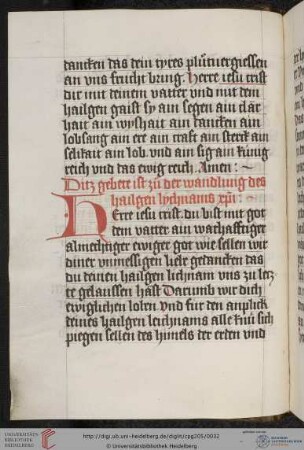 dancken das dein tyres plůtvergiessen
an vns frucht bring. Herre iesu crist
dir mit deinem vatter vnd mit dem
hailgen gaist sy ain segen ain clar
hait ain wyshait ain dancken ain
lobsang ain ere ain craft ain sterck ain
selikait ain lob vnd ain sig ain küng
reich vnd das ewig reich. Amen:
Ditz gebett ist zů der wandlung des
hailgen lychnams xpi:
Herre iesu crist du bist mit got
dem vatter ain warhafftiger
almechtiger ewiger got wie sellen wir
diner vnmessigen liebe gedancken das
du deinen hailgen lichnam vns zu letz
te gelaussen hast Darumb wir dich
ewiglichen loben vnd für den anplick
deines hailgen leichnams alle knü sich
piegen sellen des himels der erden vnd
UNIVERSITÄTS-
BIBLIOTHEK
HEIDELBERG
http://digi.ub.uni-heidelberg.de/diglit/cpg205/0032
© Universitätsbibliothek Heidelberg